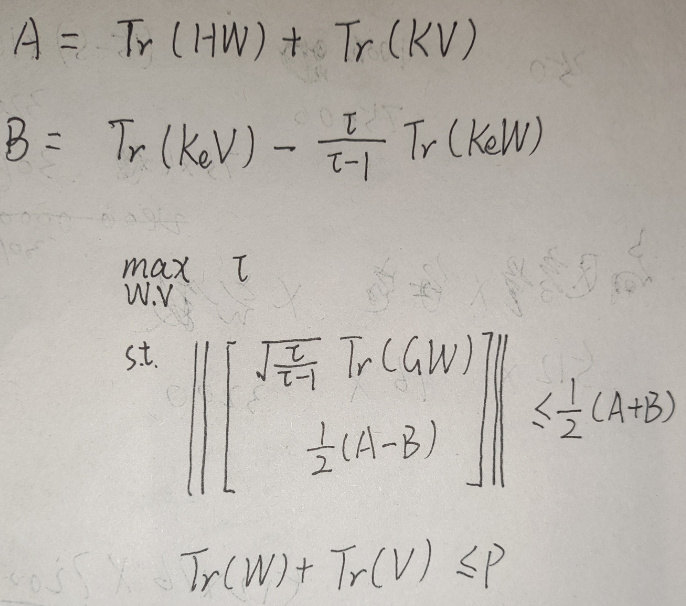 A = Tr(HW) + Tr(KV)
B = Tr(KeV) - τ/(τ-1) Tr(KeW)
max τ
W.V
s.t. || [ √(τ/(τ-1)) Tr(GW)
1/2 (A-B) ] || ≤ 1/2 (A+B)
Tr(W) + Tr(V) ≤ P